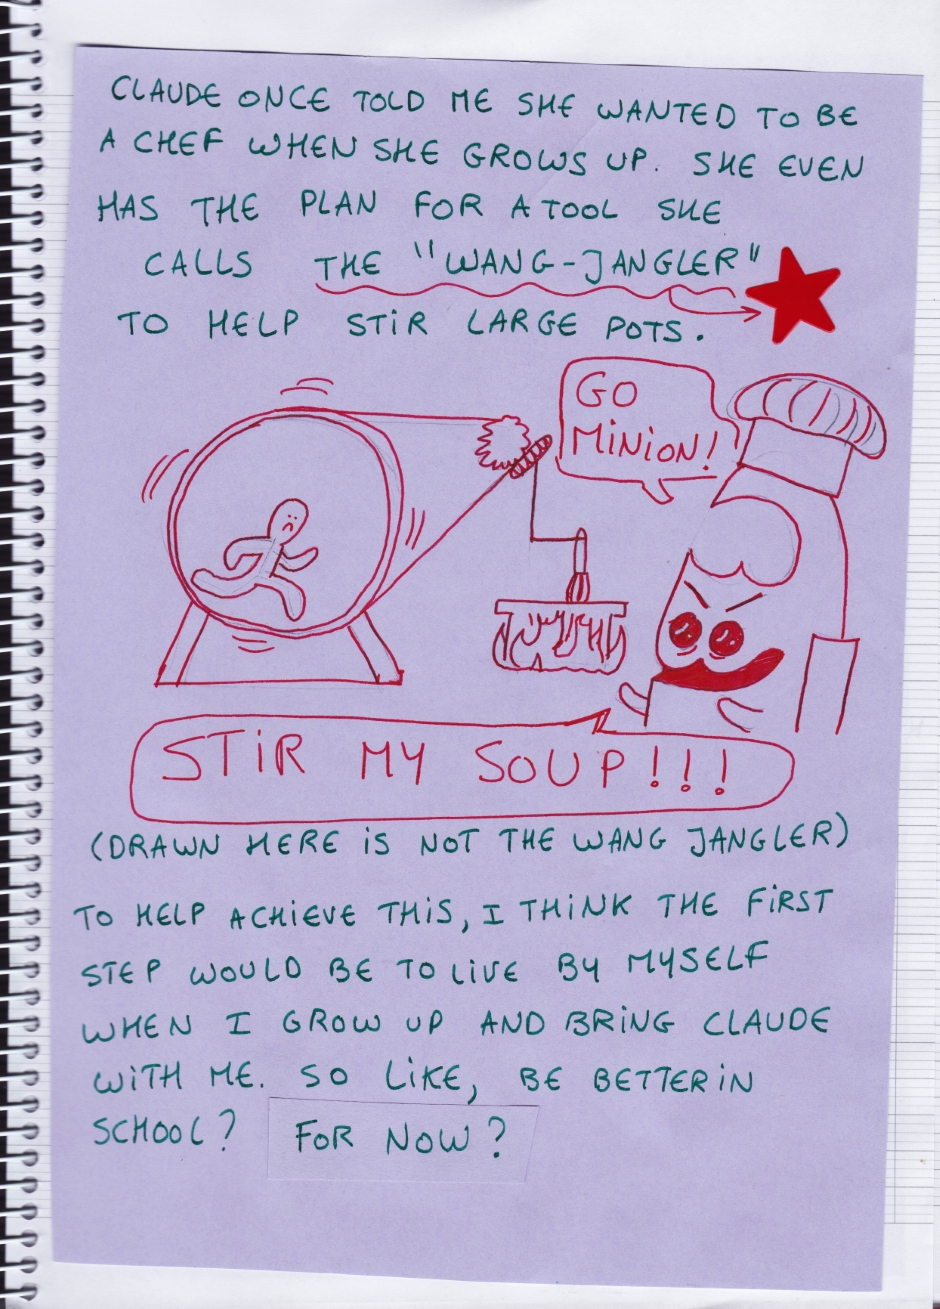 CLAUDE ONCE TOLD ME SHE WANTED TO BE
A CHEF WHEN SHE GROWS UP. SHE EVEN
HAS THE PLAN FOR A TOOL SHE
CALLS THE "WANG-JANGLER"
TO HELP STIR LARGE POTS.
GO
MINION!
STIR MY SOUP!!!
(DRAWN HERE IS NOT THE WANG JANGLER)
TO HELP ACHIEVE THIS, I THINK THE FIRST
STEP WOULD BE TO LIVE BY MYSELF
WHEN I GROW UP AND BRING CLAUDE
WITH ME. SO LIKE, BE BETTER IN
SCHOOL? FOR NOW?